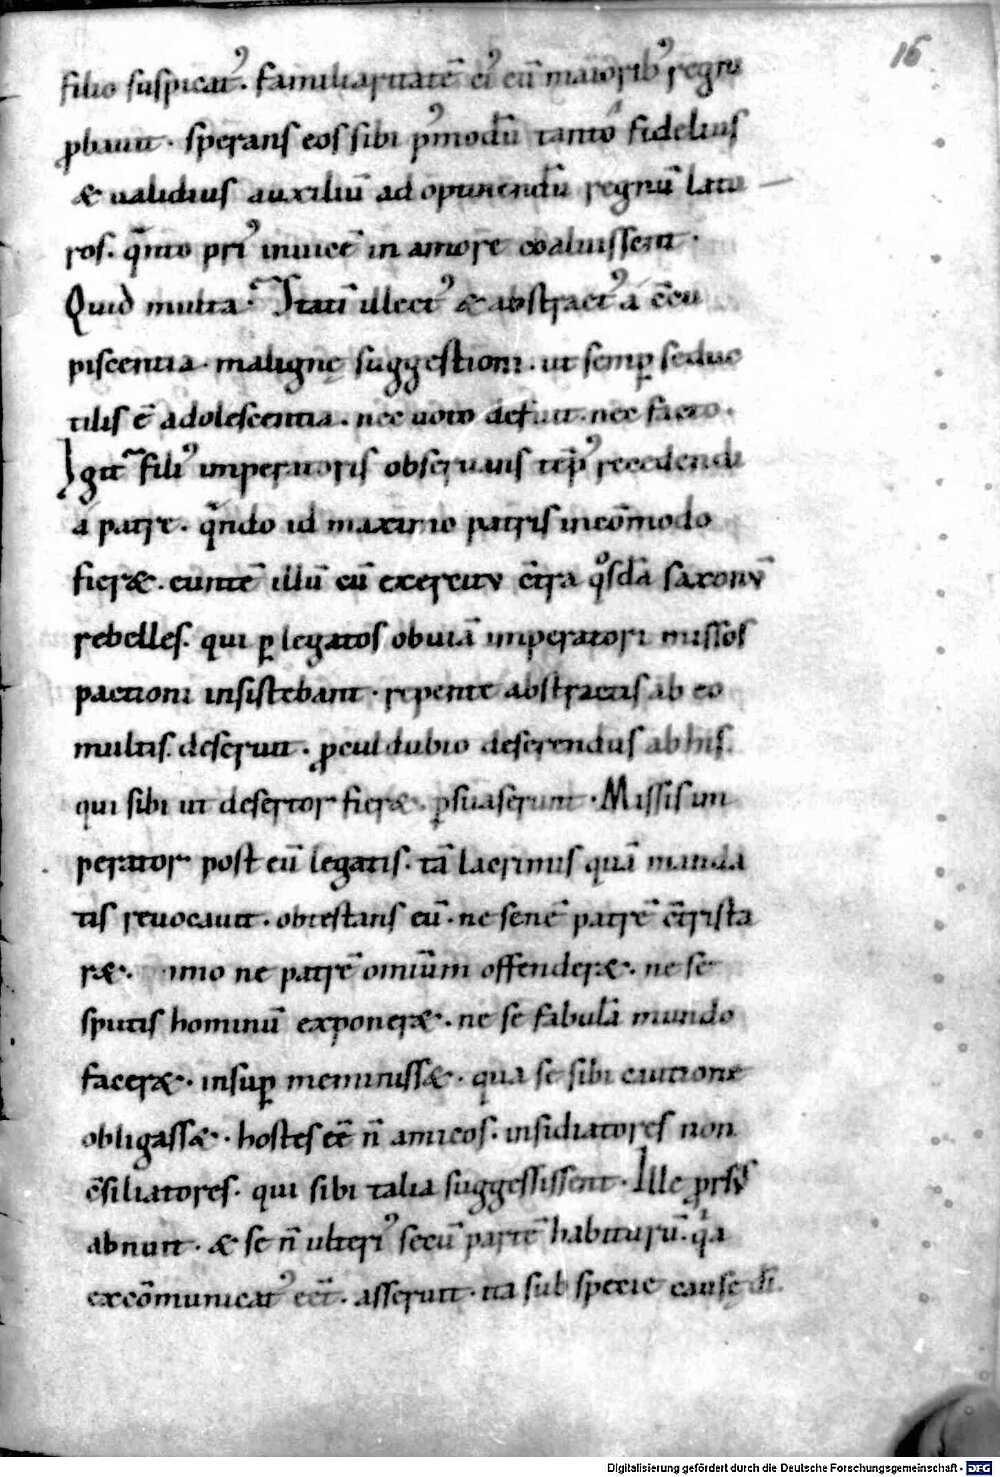 16
filio suspicat᷒. familiaritatē ei᷒ cū maiorib᷒ regni
ꝓbauit. sperans eos sibi p̄modū tanto fidelius
& ualidius auxiliū ad optinendū regnū latu
ros. q̄nto pri᷒ inuicē in amore coaluissent.
Quid multa. Itaū illect᷒ & abstract᷒ a c̄cu
piscentia. malignę suggestioni. ut semꝑ seduc
tilis ē adolescentia. nec uoto defuit. nec facto.
Igit̄ fili᷒ imperatoris obseruans tēp᷒ recedendi
a patre. q̄ndo id maximo patris incōmodo
fier&. euntē illū cū exercitu c̄tra q°sdā saxonū
rebelles. qui ꝑ legatos obuiā imperatori missos
pactioni insistebant. repente abstractis ab eo
multis. deseruit. ꝓcul dubio deserendus ab his.
qui sibi ut desertor fier&. ꝑsuaserunt. Missis im
perator post eū legatis. tā lacrimis quā manda
tis reuocauit. obtestans eū. ne senē patrē c̄trista
r&. immo ne patrē omiūm offender&. ne se
sputis hominū exponer&. ne se fabulā mundo
facer&. insuꝑ meminiss&. qua se sibi cautione
obligass&. hostes eē n̄ amicos. insidiatores non
c̄siliatores. qui sibi talia suggessissent. Ille ꝓrsus
abnuit. & se n̄ ulteri᷒ secū partē habiturū. q̄a
excōmunicat᷒ eēt. asseruit. ita sub specie causę dī.
Digitalisierung gefördert durch die Deutsche Forschungsgemeinschaft - DFG